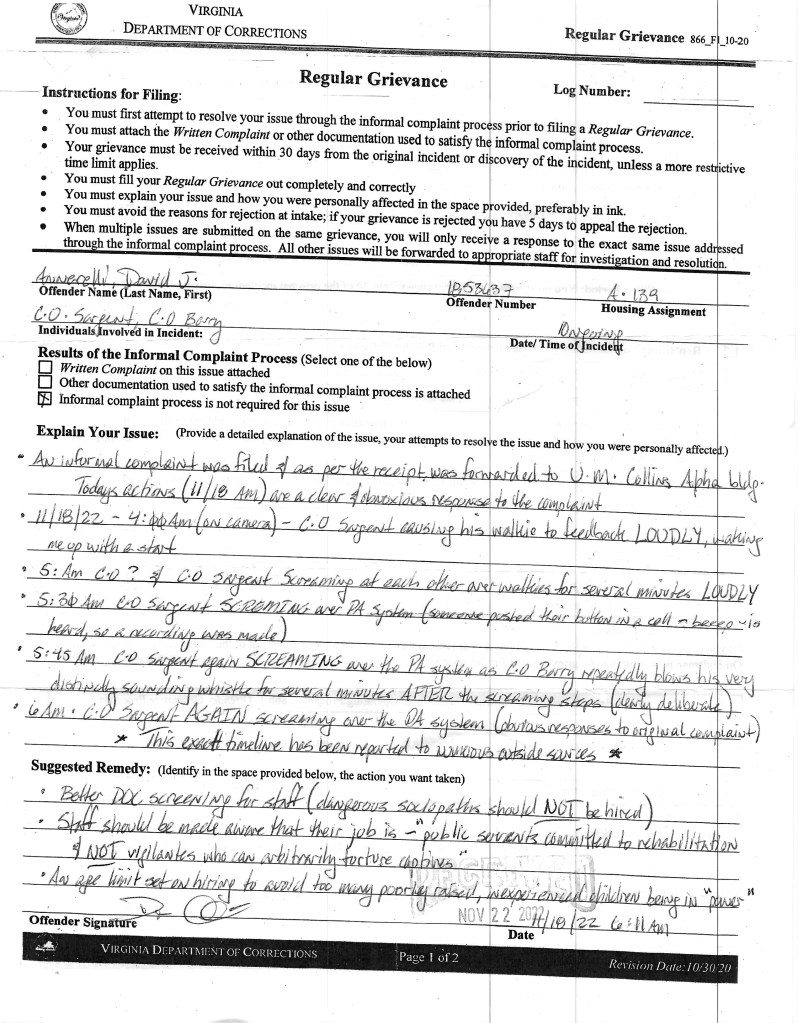 VIRGINIA
DEPARTMENT OF CORRECTIONS
Regular Grievance 866_F1_10-20
Regular Grievance
Log Number:
Instructions for Filing:
• You must first attempt to resolve your issue through the informal complaint process prior to filing a Regular Grievance.
• You must attach the Written Complaint or other documentation used to satisfy the informal complaint process.
• Your grievance must be received within 30 days from the original incident or discovery of the incident, unless a more restrictive
time limit applies.
• You must fill your Regular Grievance out completely and correctly
• You must explain your issue and how you were personally affected in the space provided, preferably in ink.
• You must avoid the reasons for rejection at intake; if your grievance is rejected you have 5 days to appeal the rejection.
• When multiple issues are submitted on the same grievance, you will only receive a response to the exact same issue addressed
through the informal complaint process. All other issues will be forwarded to appropriate staff for investigation and resolution.
Annarelli, David J. 1853637 A-139
Offender Name (Last Name, First) Offender Number Housing Assignment
C.O. Sargent, C.O Barry Ongoing
Individuals Involved in Incident: Date/ Time of Incident
Results of the Informal Complaint Process (Select one of the below)
Written Complaint on this issue attached
Other documentation used to satisfy the informal complaint process is attached
Informal complaint process is not required for this issue
Explain Your Issue: (Provide a detailed explanation of the issue, your attempts to resolve the issue and how you were personally affected.)
• An informal complaint was filed & as per the receipt, was forwarded to U.M. Collins Alpha bldg.
Todays actions (11/18 AM) are a clear & obnoxious response to the complaint
• 11/18/22 - 4:00 Am (on camera) - C.O Sargent causing his walkie to feedback LOUDLY, waking
me up with a start
• 5: Am C.O ? & C.O Sargent Screaming at each other over walkies for several minutes LOUDLY
• 5:30 Am C.O Sargent SCREMING over PA system (someone pushed their button in a cell - beeep - is
heard, so a recording was made)
• 5:45 Am C.O Sargent again SCREAMING over the PA system as C.O Barry repeatedly blows his very
distinctly sounding whistle for several minutes AFTER the screaming stops (clearly deliberate)
• 6 Am. C.O Sargent AGAIN screaming over the PA system (obvious responses to original complaint)
* This exact timeline has been reported to numerous outside sources *
Suggested Remedy: (Identify in the space provided below, the action you want taken)
• Better DOC screening for staff (dangerous sociopaths should NOT be hired)
• Staff should be made aware that their job is - "public servants committed to rehabilitation
& NOT vigilantes who can arbitrarily torture captives"
• An age limit set on hiring to avoid too many poorly raised, inexperienced children being in "power"
NOV 22 2022 11/18/22 6:11 AM
Offender Signature Date
VIRGINIA DEPARTMENT OF CORRECTIONS Page 1 of 2 Revision Date: 10/30/20